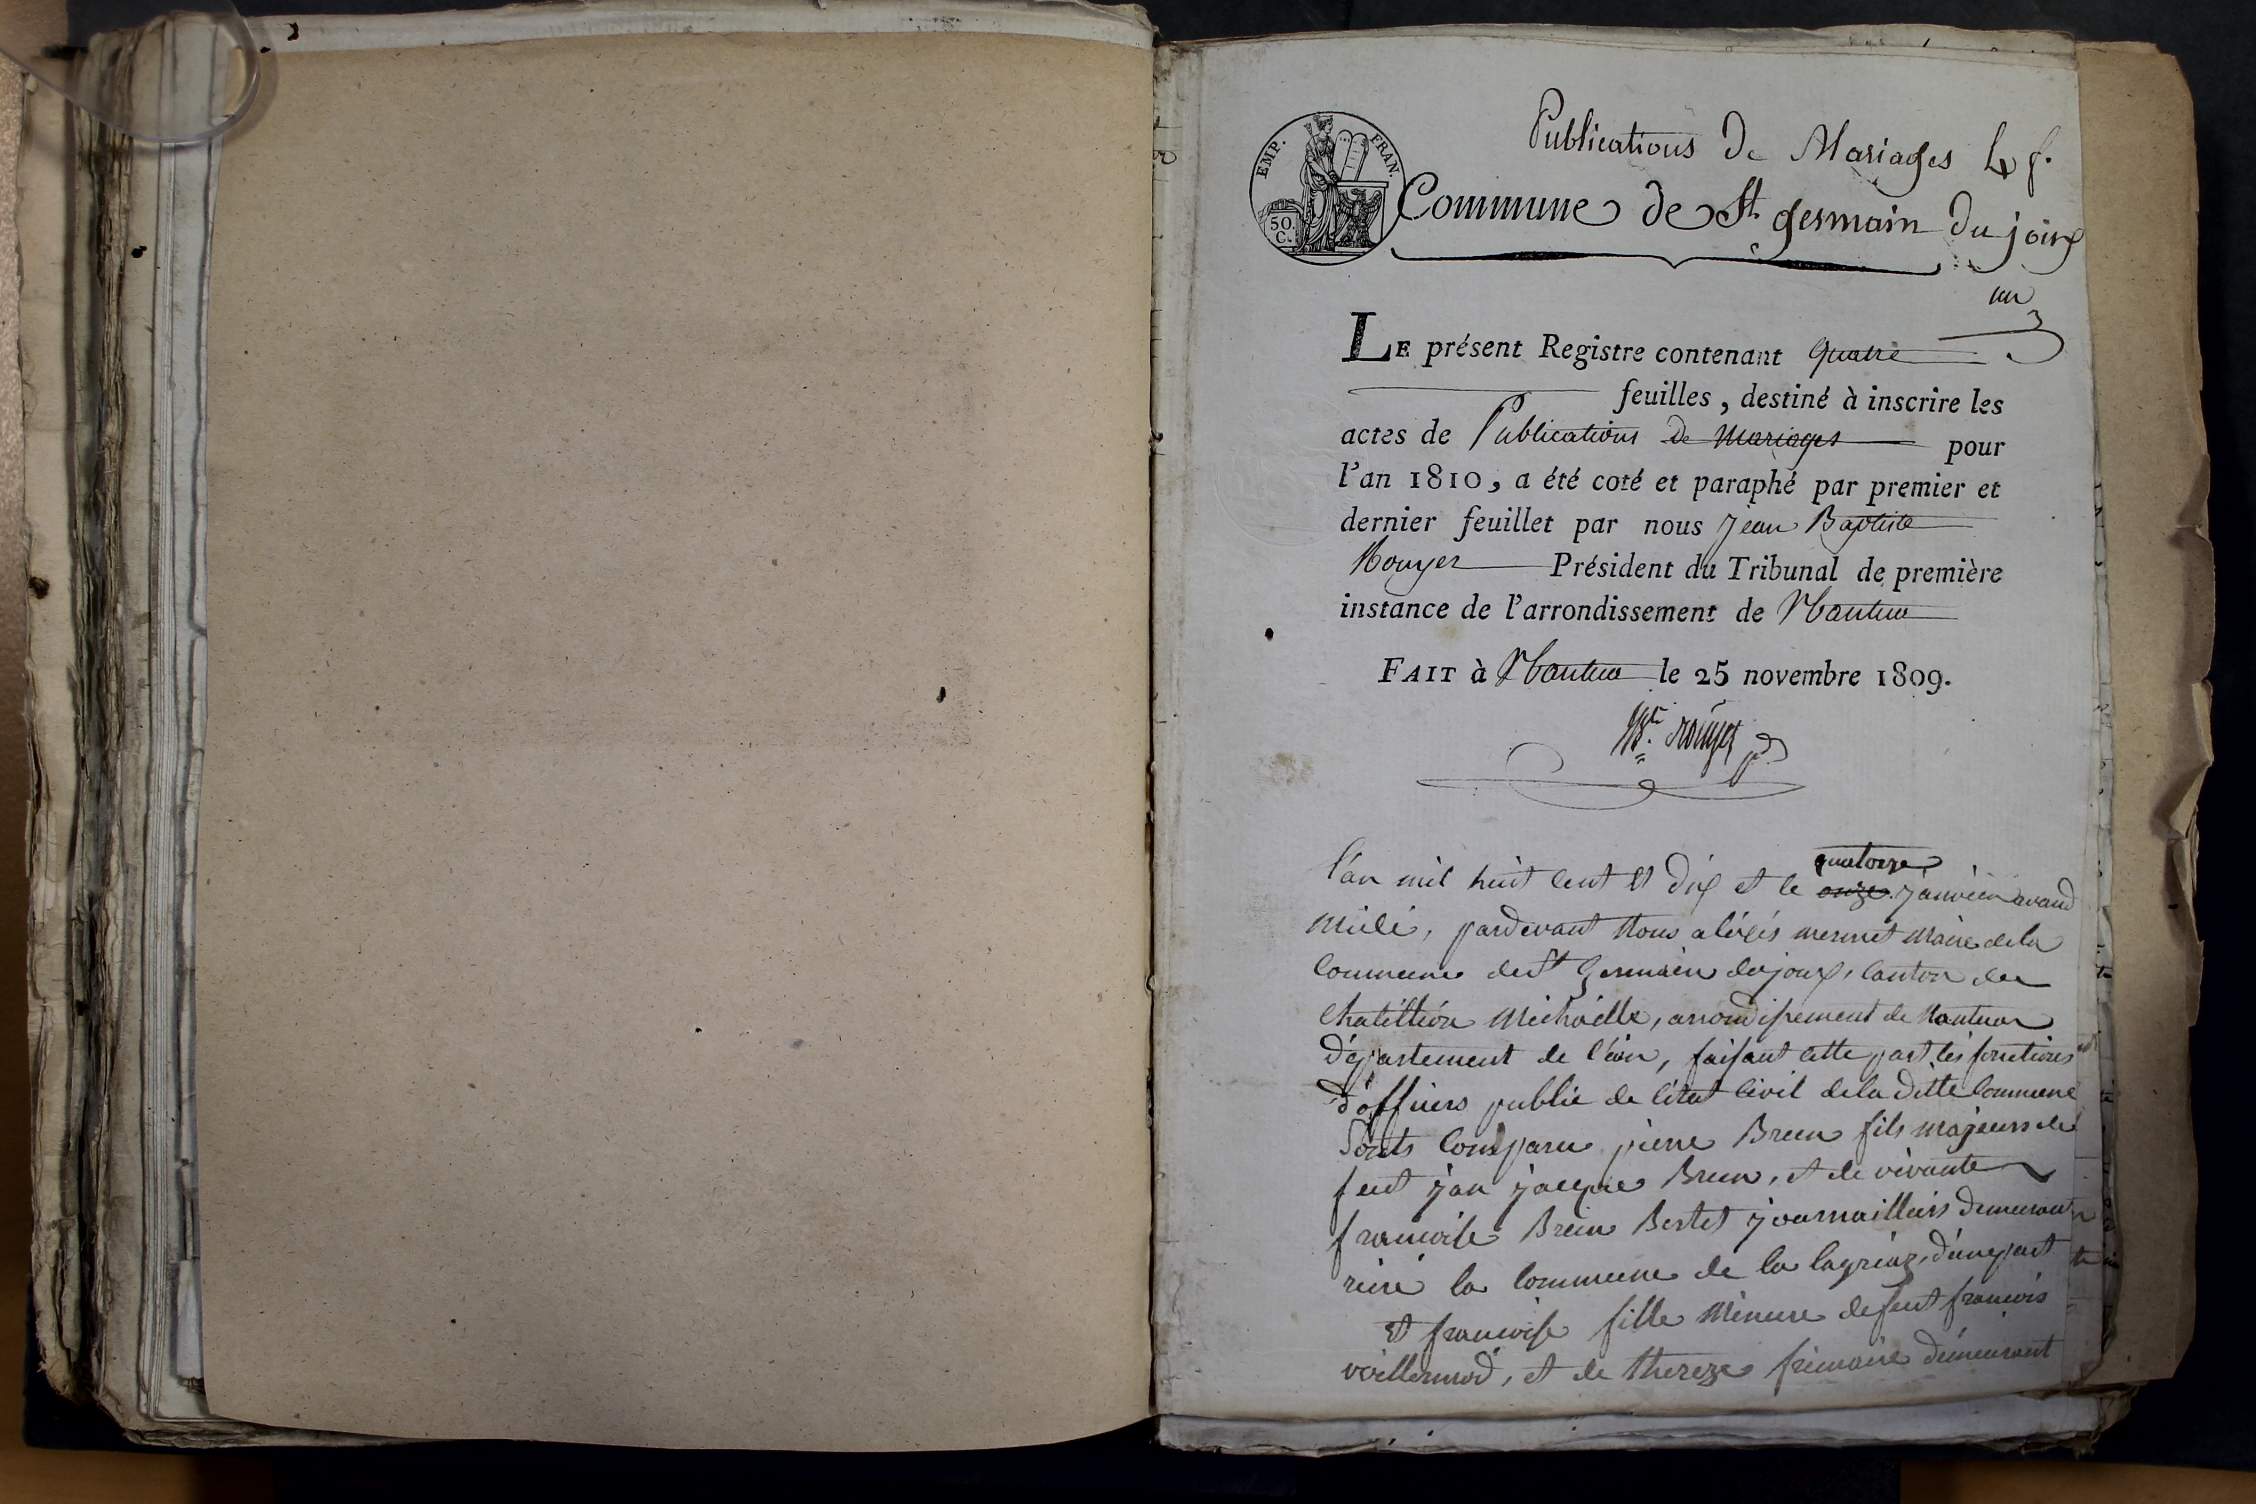 Publications De Mariages 4 f.
EMP. FRAN.
50. C.
Commune de St germain Du joux
un
LE présent Registre contenant Quatre
feuilles, destiné à inscrire les
actes de Publications De Mariages pour
l'an 1810, a été coté et paraphé par premier et
dernier feuillet par nous Jean Baptiste
Rouyer Président du Tribunal de première
instance de l'arrondissement de Nantua
FAIT à Nantua le 25 novembre 1809.
Rouyer
l'an mil huit cent et dix et le onze quatorze janvier avand
midi, pardevant Nous mermet Maire de la
Commune de St Germain dujoux, canton de
chatillion Michaille, arrondissement de Nantua
département de l'ain, faisant cette part les fonctions
d'officiers public de l'état civil de la ditte Commune
Sonts Comparu pierre Brun fils majeurs de
feut jan jacque Brun, et de vivante
francoise Brun Bertet journailliers demeurant
riere la Commune de la d'une part
et francoise fille Mineure de feut francois
voillermod, et de thereze demeurant